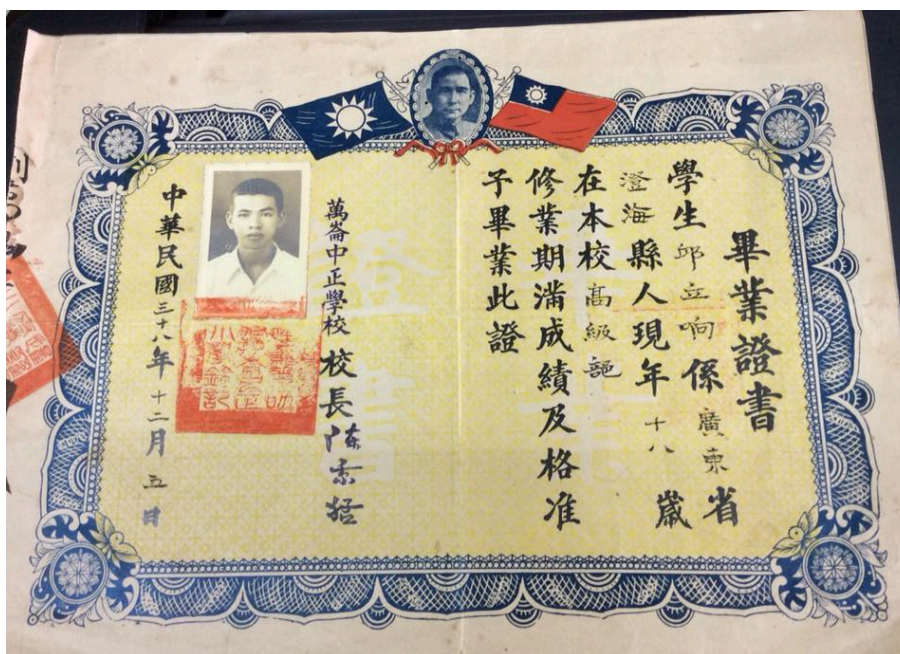 畢業證書
學生邱立响係廣東省
澄海縣人現年十八歲
在本校高級部
修業期滿成績及格准
予畢業此證
萬崙中正學校校長陳
中華民國三十八年十二月五日
證書
畢業